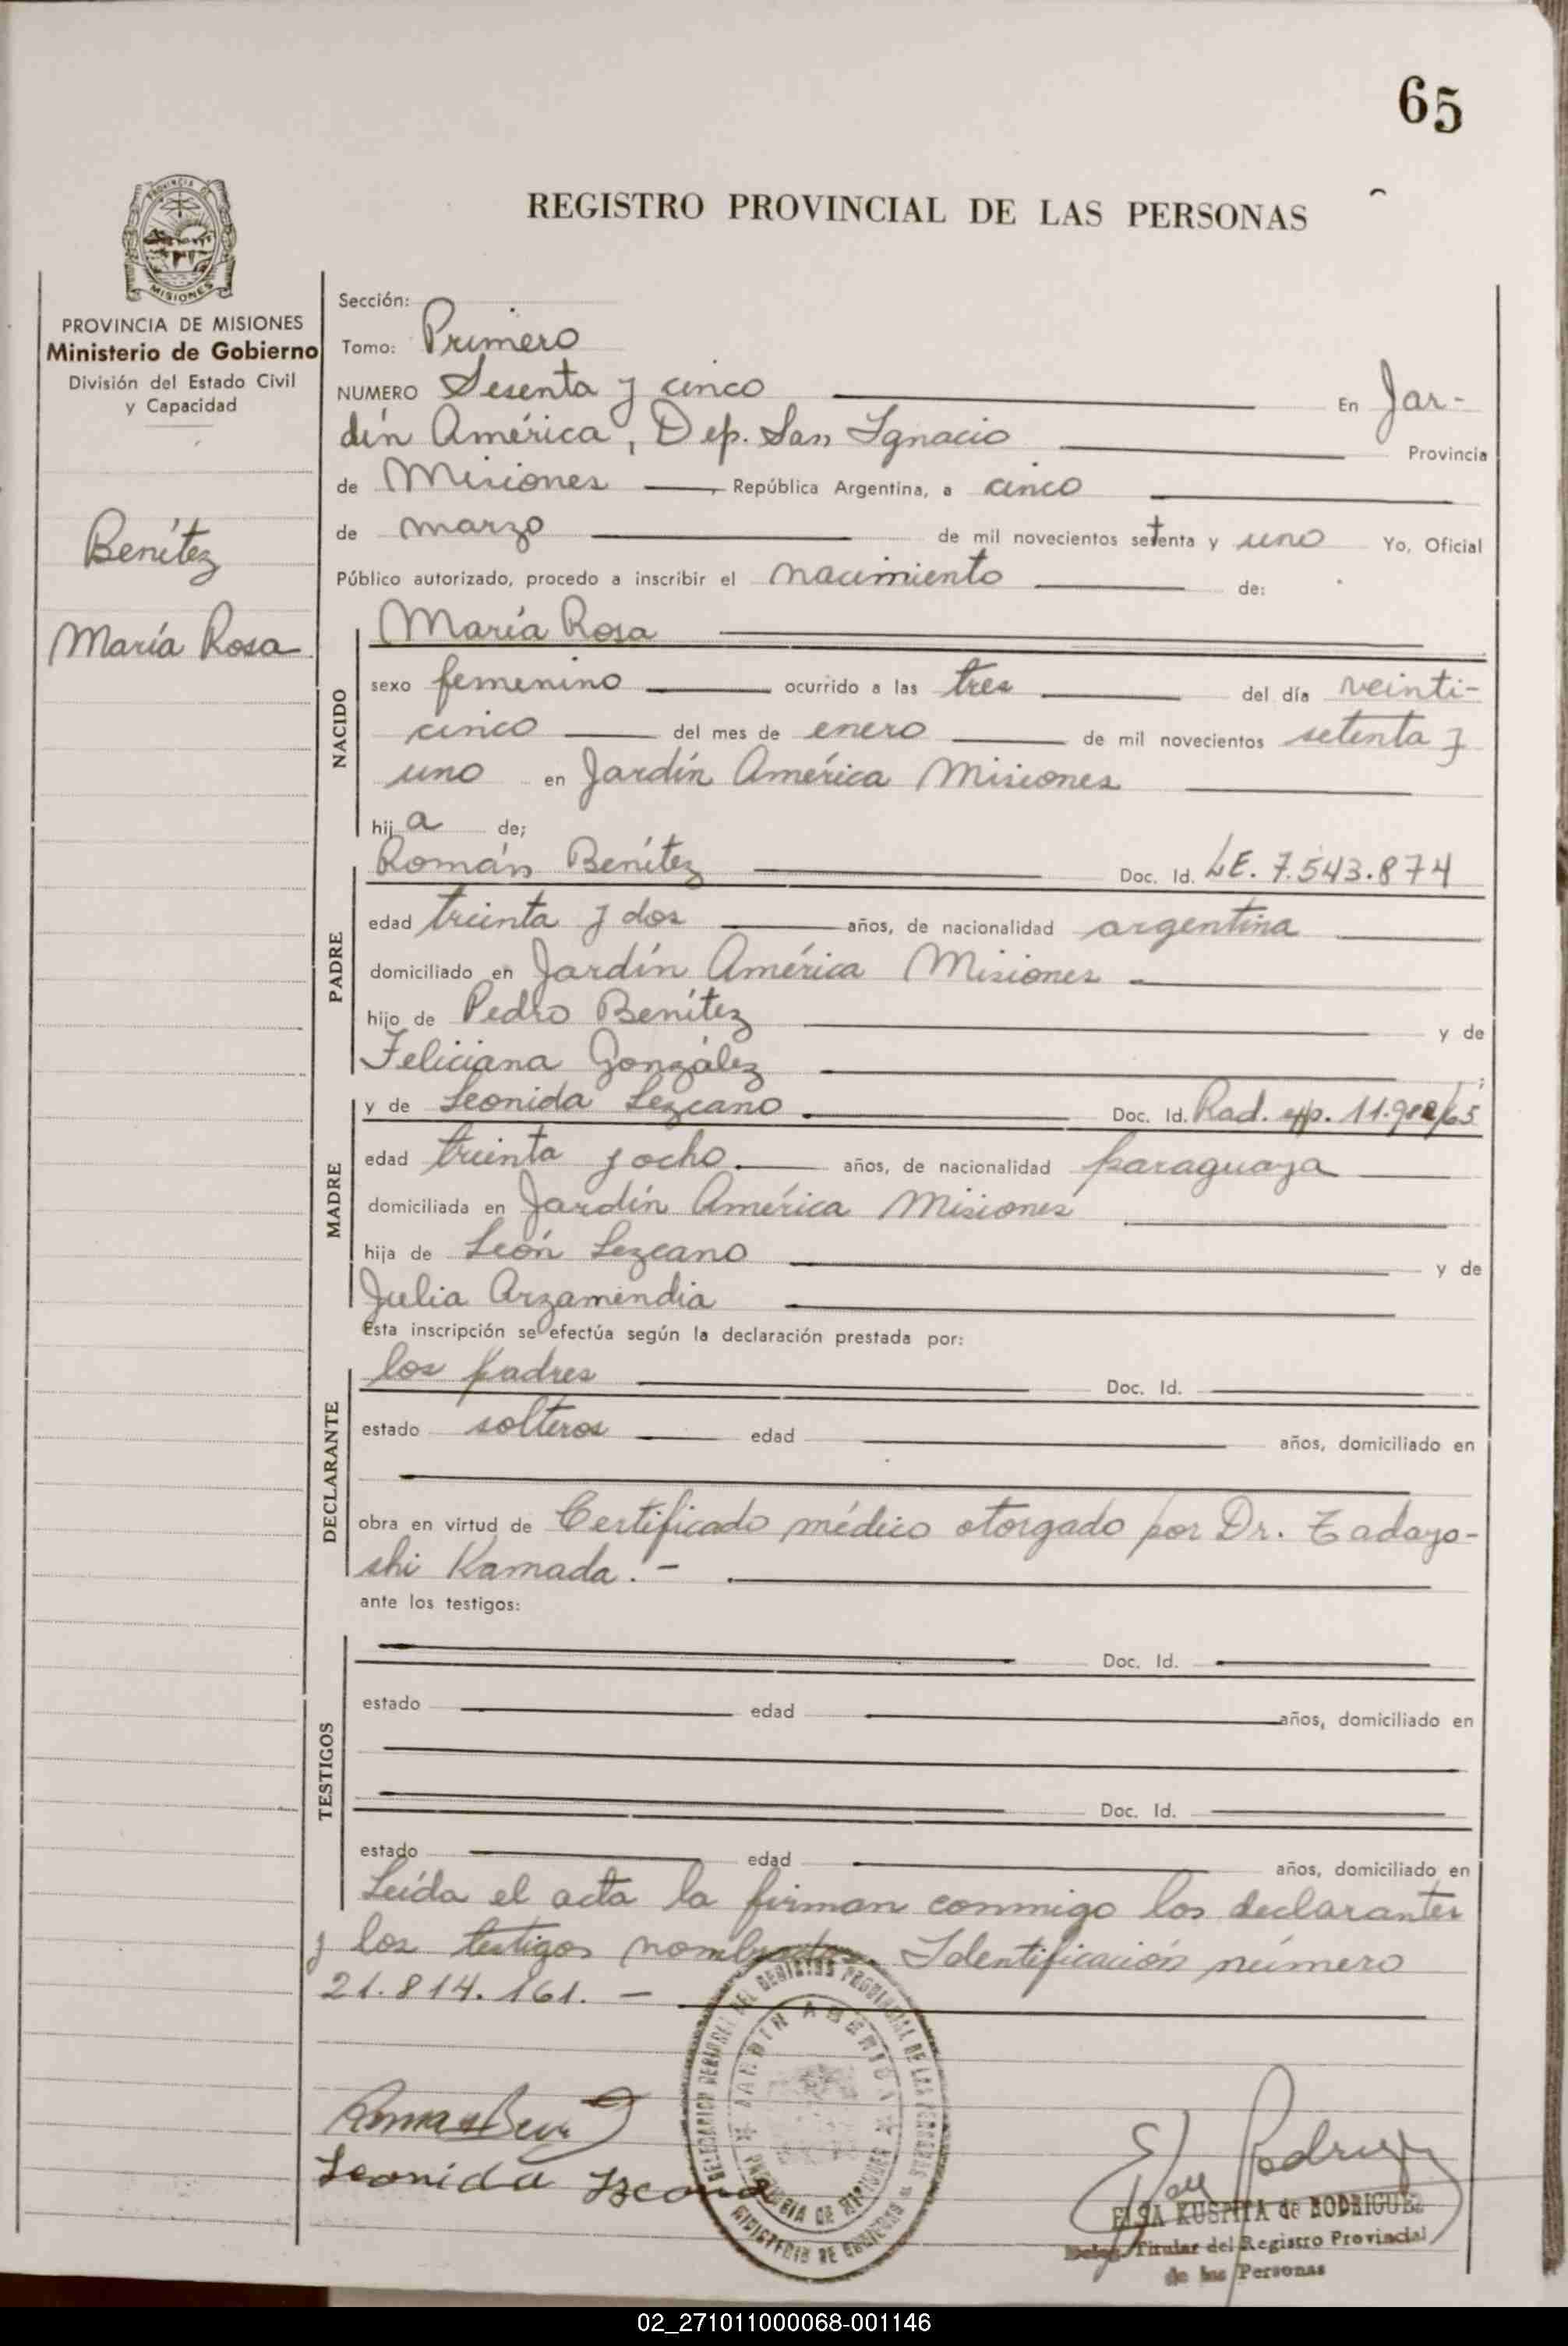 65
REGISTRO PROVINCIAL DE LAS PERSONAS
PROVINCIA DE MISIONES
Ministerio de Gobierno
División del Estado Civil
y Capacidad
Benítez
María Rosa
Sección:
Tomo: Primero
NUMERO Sesenta y cinco En Jar-
dín América, Dep. San Ignacio Provincia
de Misiones, República Argentina, a cinco
de marzo de mil novecientos setenta y uno Yo, Oficial
Público autorizado, procedo a inscribir el nacimiento de:
NACIDO
María Rosa
sexo femenino ocurrido a las tres del día veinti-
cinco del mes de enero de mil novecientos setenta y
uno en Jardín América Misiones
hij a de;
PADRE
Román Benítez Doc. Id. LE. 7.543.874
edad treinta y dos años, de nacionalidad argentina
domiciliado en Jardín América Misiones
hijo de Pedro Benítez y de
Feliciana González ;
MADRE
y de Leonida Lezcano Doc. Id. Rad. exp.
edad treinta y ocho años, de nacionalidad paraguaya
domiciliada en Jardín América Misiones
hija de León Lezcano y de
Julia Arzamendia
Esta inscripción se efectúa según la declaración prestada por:
DECLARANTE
los padres Doc. Id.
estado solteros edad años, domiciliado en
obra en virtud de Certificado médico otorgado por Dr. Tadayo-
shi Kamada. -
ante los testigos:
TESTIGOS
Doc. Id.
estado edad años, domiciliado en
Doc. Id.
estado edad años, domiciliado en
Leída el acta la firman conmigo los declarantes
y los testigos nombrados Identificación número
21.814.161. -
DELEGACION DEL REGISTRO PROVINCIAL DE LAS PERSONAS
JARDIN AMERICA
PROVINCIA DE MISIONES
MINISTERIO DE GOBIERNO
Leonida
Elsa Rodriguez
ELSA KUSPITA de RODRIGUEZ
Deleg. Titular del Registro Provincial
de las Personas
02_271011000068-001146